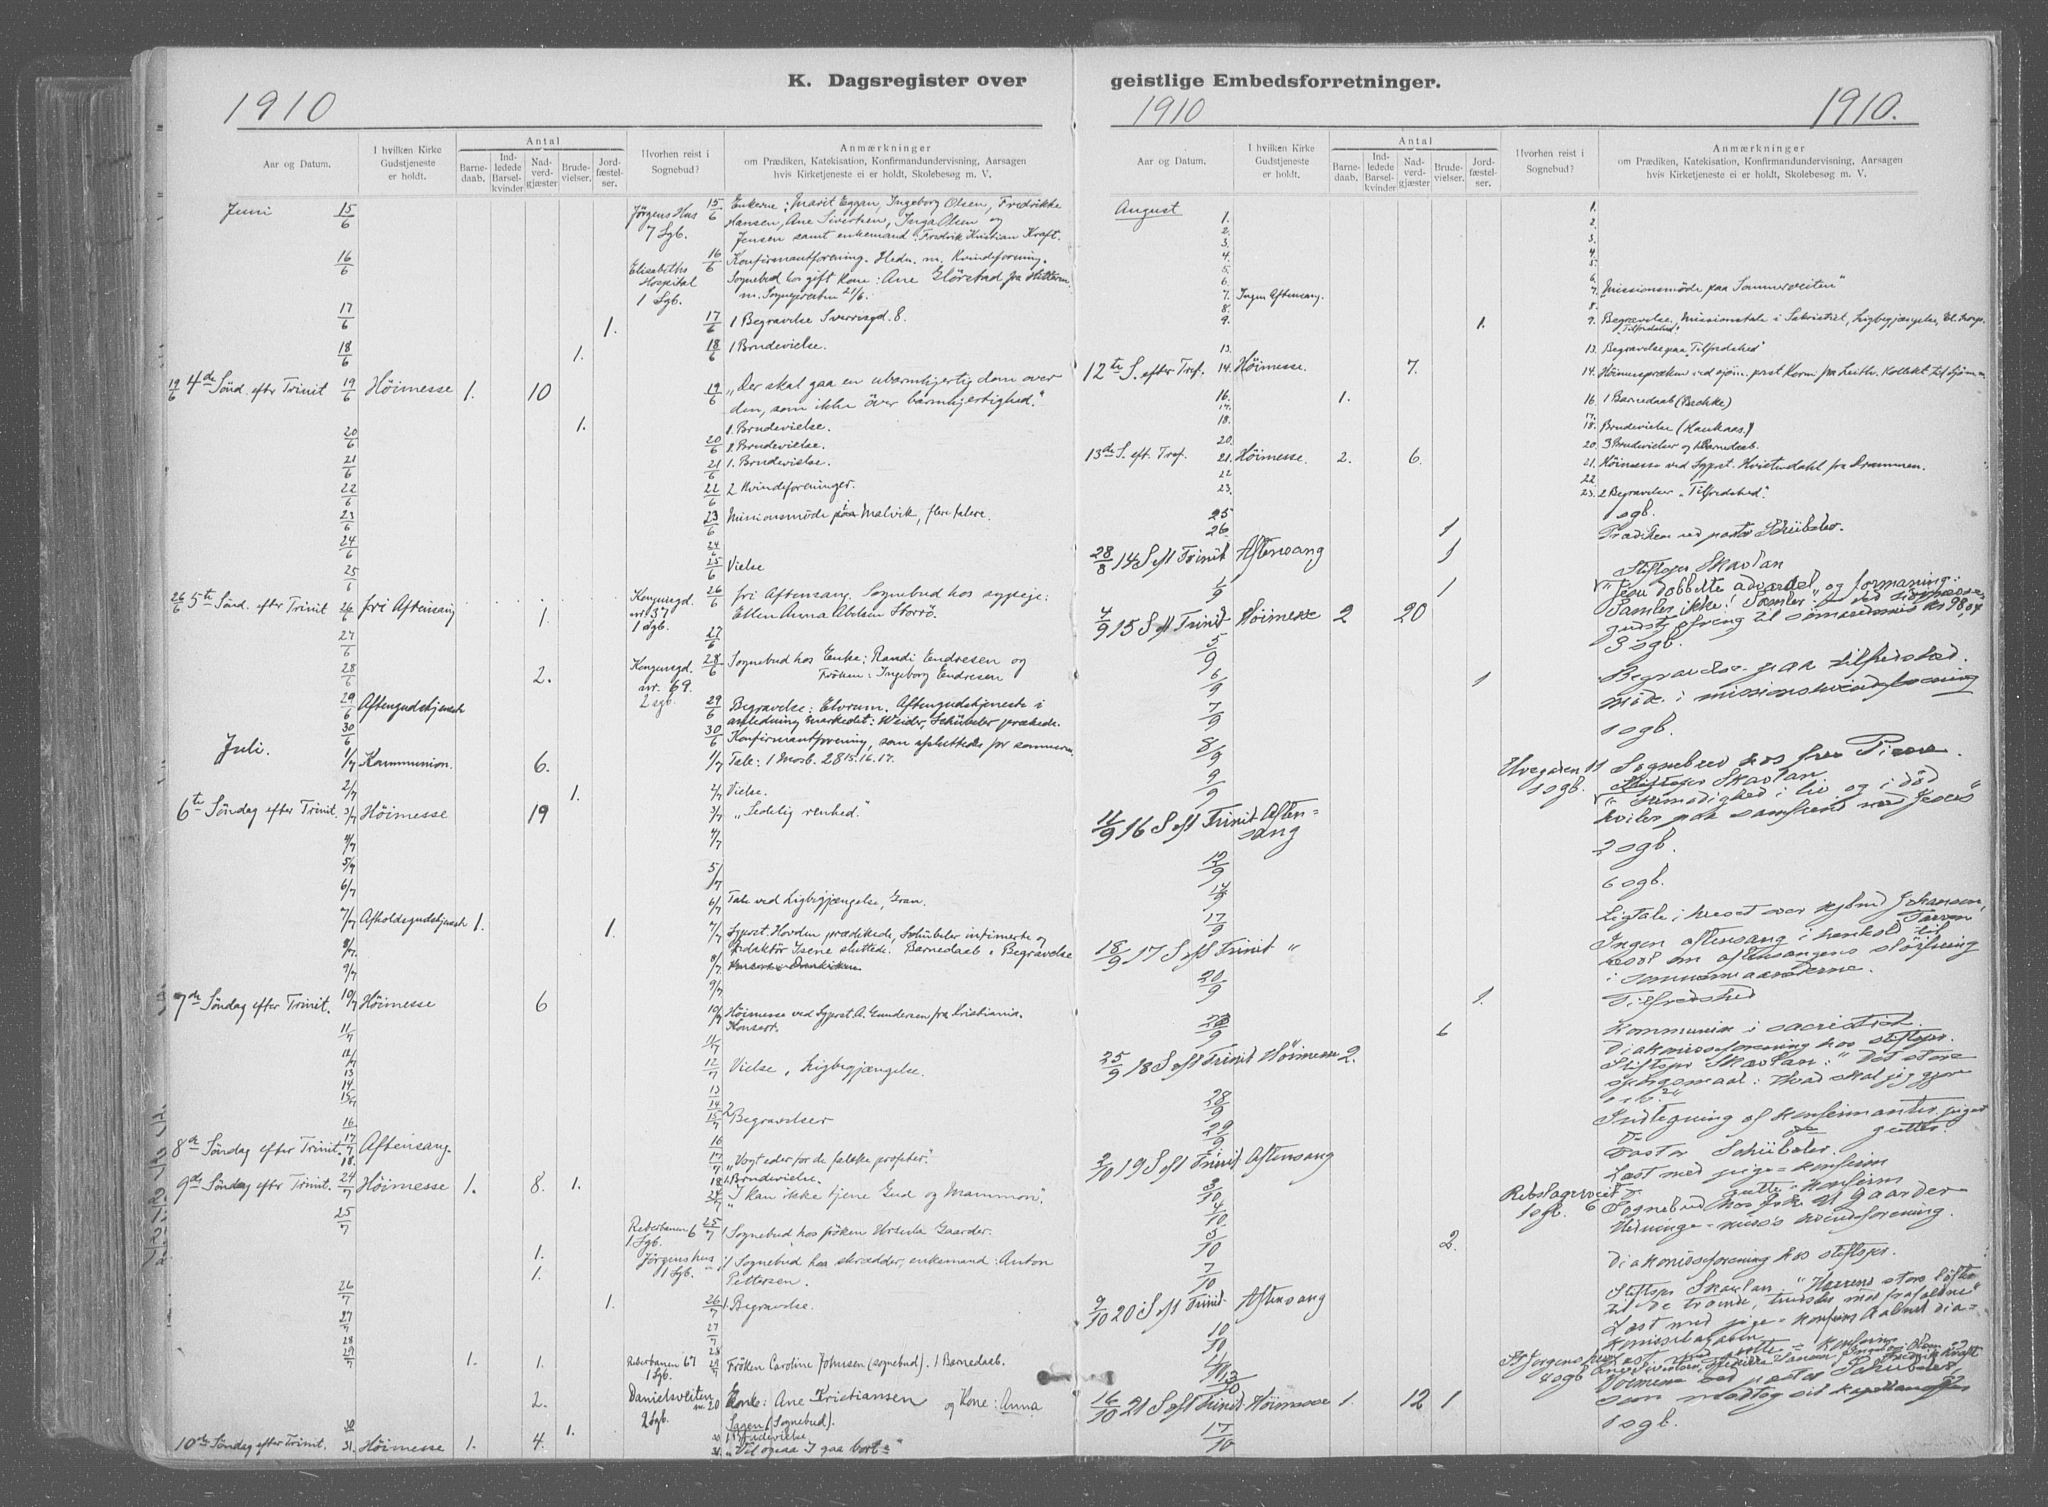 K. Dagsregister over geistlige Embedsforretninger.
1910
1910
1910.
Aar og Datum.
I hvilken Kirke Gudstjeneste er holdt.
Antal
Barnedaab.
Indledede Barselkvinder
Nadverdgjæster
Brudevielser.
Jordfæstelser.
Hvorhen reist i Sognebud?
Anmærkninger
om Prædiken, Katekisation, Konfirmandundervisning, Aarsagen
hvis Kirketjeneste ei er holdt, Skolebesøg m. V.
Juni 15/6 Jörgens Hus 7 Sgb. 15/6 Enkerne: Marit Eggan, Ingeborg Olsen, Fredrikke
Hansen, Ane Sivertsen, Inga Olsen og
Jensen samt enkemand: Fredrik Kristian Kraft.
16/6 Elisabeths Hospital 1 Sgb. 16/6 Konfirmantforening. Hedn. m. Kvindeforening.
Sognebud hos gift kone: Ane Glörstad fra Hitteren
m. Sognepresten 21/6.
17/6 1. 17/6 1 Begravelse Sverresgd. 8.
18/6 1. 18/6 1 Brudevielse.
19/6 4de Sönd. efter Trinit 19/6 Höimesse 1. 10 19/6 "Der skal gaa en ubarmhjertig dom over
den, som ikke över barmhjertighed."
1. 1. Brudevielse.
20/6 20/6 2 Brudevielse.
21/6 21/6 1. Brudevielse.
22/6 22/6 2 Kvindeforeninger.
23/6 23/6 Missionsmöde i Malvik, flere talere.
24/6 24/6
25/6 25/6 Vielse
26/6 5te Sönd. efter Trinit 26/6 fri Aftensang 1. Kongensgd. nr 37 1 Sgb. 26/6 fri Aftensang. Sognebud hos sygepl:
Ellen Anna Abelsen Storrö.
27/6 27/6
28/6 2. Kongensgd. nr. 69. 2 sgb. 28/6 Sognebud hos Enke: Randi Endresen og
Fröken: Ingeborg Endresen
29/6 Aftengudstjeneste 29/6 Begravelse: Elvrum. Aftengudstjeneste i
anledning markedet: Weider, Schübeler prækede.
30/6 30/6 Konfirmantforening, som afsluttedes for sommeren
Juli. 1/7 Kommunion. 6. 1/7 Tale: 1 Mosb. 28 15. 16. 17.
2/7 1. 2/7 Vielse.
6te Söndag efter Trinit. 3/7 Höimesse 19 3/7 "Sedelig renhed."
4/7 4/7
5/7 5/7
6/7 6/7 Tale ved Ligbegjængelse, Gran.
7/7 Afholdsgudstjeneste 1. 1. 7/7 Sgpst. Hovden prædikede, Schübeler intimerte og
Redaktör Isene sluttede. Barnedaab. Begravelse
8/7 8/7
9/7 9/7
7de Söndag efter Trinit. 10/7 Höimesse 6 10/7 Höimesse ved Sgpst. A. Gundersen fra Kristiania.
Konsert.
11/7 11/7
12/7 12/7 Vielse, Ligbegjængelse.
13 13
14 14
15/7 15/7 2 Begravelser
16 16
8de Söndag efter Trinit. 17/7 Aftensang. 17/7 "Vogt eder for de falske profeter."
18. 18 1 Brudevielse.
9de Söndag efter Trinit. 24/7 Höimesse 1. 8. 1. 24/7 "I kan ikke tjene Gud og Mammon".
25/7 1. Reberbanen 6 1 Sgb. 25/7 Sognebud hos fröken Ursula Gaarder.
1. Jörgens hus 1 Sgb. " Sognebud hos skrædder, enkemand: Anton
Pettersen.
26/7 1. 26/7 1. Begravelse.
27/7 27/7
28 28
29/7 1. 1. Reberbanen 67 1 Sgb. 29/7 Fröken Caroline Johnsen (sognebud). 1 Barnedaab.
2. Danielsveiten nr. 20 2 Sgb. Enke: Ane Kristiansen og Kone: Anna
Sagen (Sognebud).
30 1. 30 1 Brudevielse
10de Söndag efter Trinit. 31. Höimesse 1. 4. 31. "Vil ogsaa I gaa bort"
Aar og Datum.
I hvilken Kirke Gudstjeneste er holdt.
Antal
Barnedaab.
Indledede Barselkvinder
Nadverdgjæster
Brudevielser.
Jordfæstelser.
Hvorhen reist i Sognebud?
Anmærkninger
om Prædiken, Katekisation, Konfirmandundervisning, Aarsagen
hvis Kirketjeneste ei er holdt, Skolebesøg m. V.
August 1. 1.
2. 2.
3. 3.
4. 4.
5. 5
6. 6.
7. Ingen Aftensang. 7. Missionsmöde paa Sommerveiten"
8. 8.
9. 1. 9. Begravelse, Missionstale i Sakristiet, Ligbegjængelse,
"Tilfredshed"
13. 13. Begravelse paa "Tilfredshed"
12te S. efter Tref. 14. Höimesse. 7. 14.
16. 1. 16. 1 Barnedaab
17. 17.
18. 18. Brudevielse
20. 20. 3 Brudevielser og 1 Barnedaab.
13de S. eft. Tref. 21. Höimesse. 2. 6. 21. Höimesse ved Sgpst. Kvistendahl fra Drammen.
22 22
23. 23. 2 Begravelser "Tilfredshed".
25 1 sgb.
26 1 Prædiken ved pastor Schübeler.
28/8 14 S eft Trinit Aftensang 1 Stiftspr Skavlan
"Jesu dobbelte advarsel og formaning:
1/9 1 Samler ikke! Samler!"
4/9 15 S eft Trinit Höimesse 2 20
5/9 3 sgb.
6/9 1 Begravelse paa tilfredshed.
7/9 Möde i missionskvindeforening
8/9 1 sgb.
9/9 Elvegaden 11 1 sgb. Sognebud hos fru
11/9 16 S eft Trinit Aftensang Stiftspr Skavlan
"Frimodighed i liv og i död
hviler paa samfund med Jesus"
12/9 2 sgb.
14/9 6 sgb.
17/9 Ligtale i huset over
18/9 17 S eft Trinit " Ingen aftensang i henhold til
res. om aftensangens slöifning
i sommermaanederne.
20/9 1. Tilfredshed
23/9 6 Kommunion i sacristiet.
Diakonisseforening hos stiftspr.
25/9 18 S eft Trinit Höimesse 2. Stiftspr Skavlan: "Det store
spörgsmaal: Hvad skal jeg gjöre
28/9 Indtegning af konfirmanter piger
29/9 gutter.
2/10 19 S eft Trinit Aftensang Pastor Schübeler.
3/10 Læst med pige-konfirm
4/10 gutte-konfirm
5/10 2. Rebslagerveit 6 1 sgb. Sognebud hos frk. U. Gaarder
Hedninge-miss's kvindeforening.
7/10 Diakonisseforening hos stiftspr.
9/10 20 S eft Trinit Aftensang Stiftspr Skavlan "Herrens store löfter
10/10 Læst med pige-konfirm
11/10
13/10 St Jorgens hus 7 sgb
16/10 21 S eft Trinit Höimesse 1. 12 1 Höimesse ved pastor Schübeler
17/10 1 sgb.